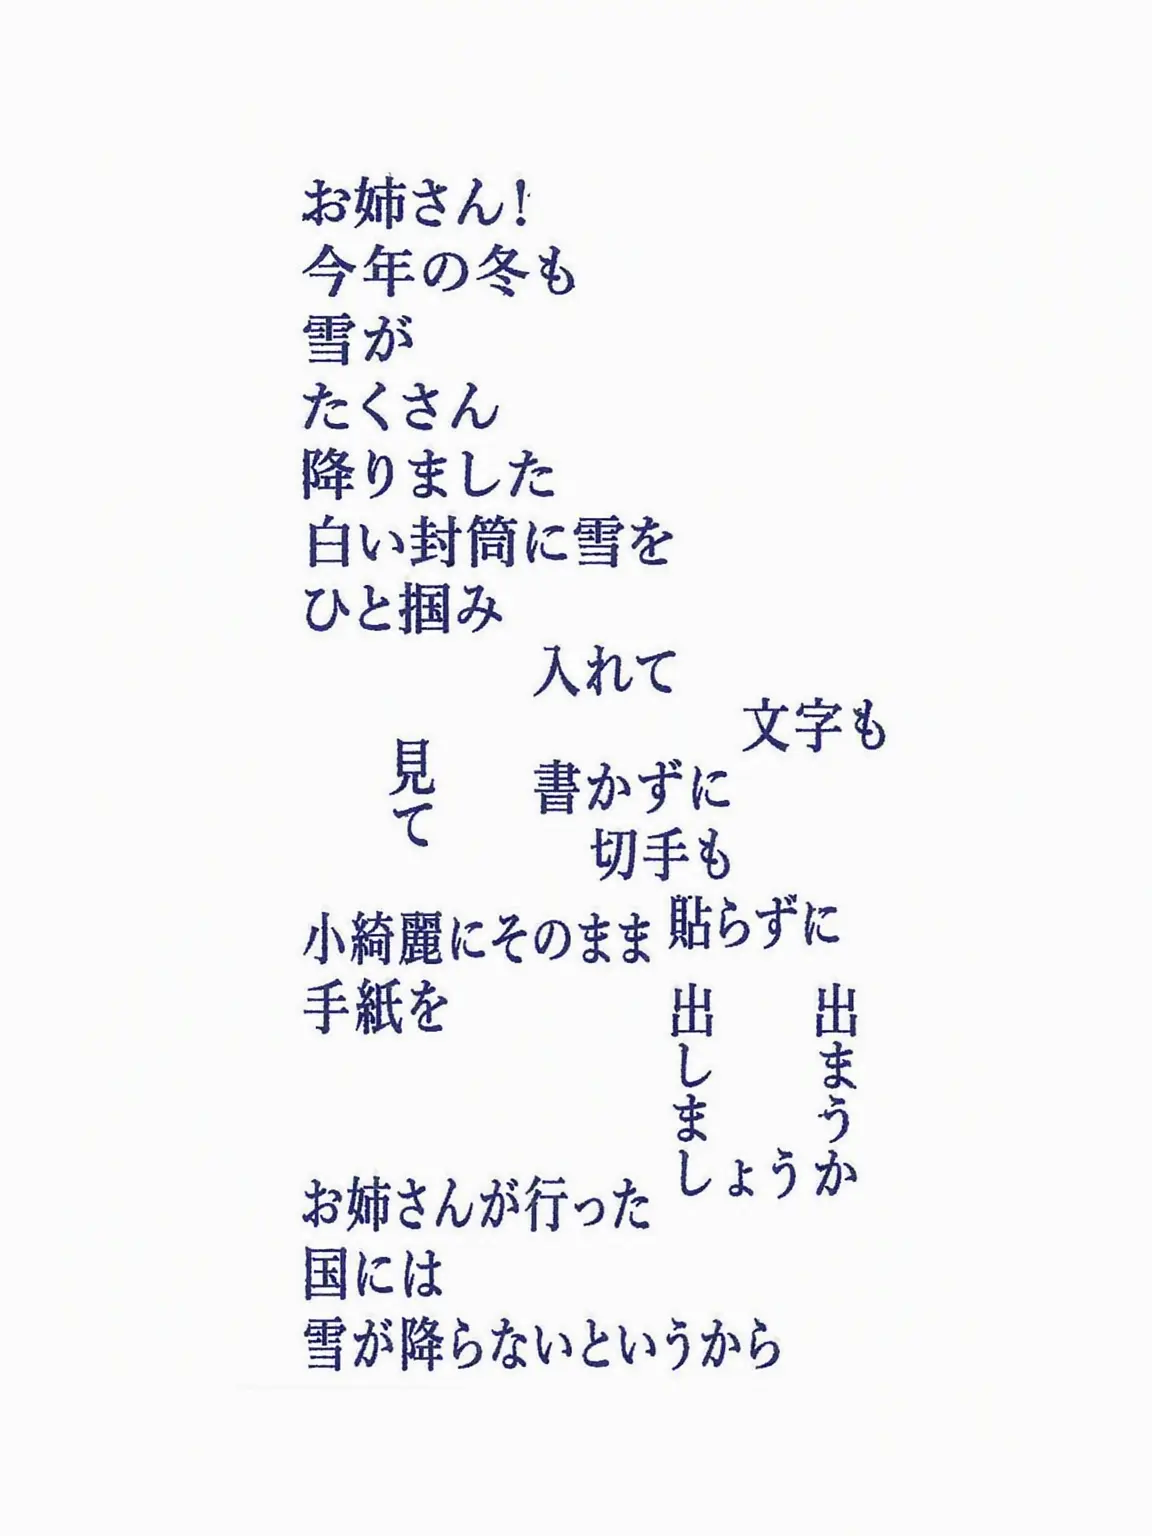 お姉さん！
今年の冬も
雪が
たくさん
降りました
白い封筒に雪を
ひと掴み
入れて
文字も
見て
書かずに
切手も
貼らずに
小綺麗にそのまま
手紙を
出しましょうか
出まうか
お姉さんが行った
国には
雪が降らないというから